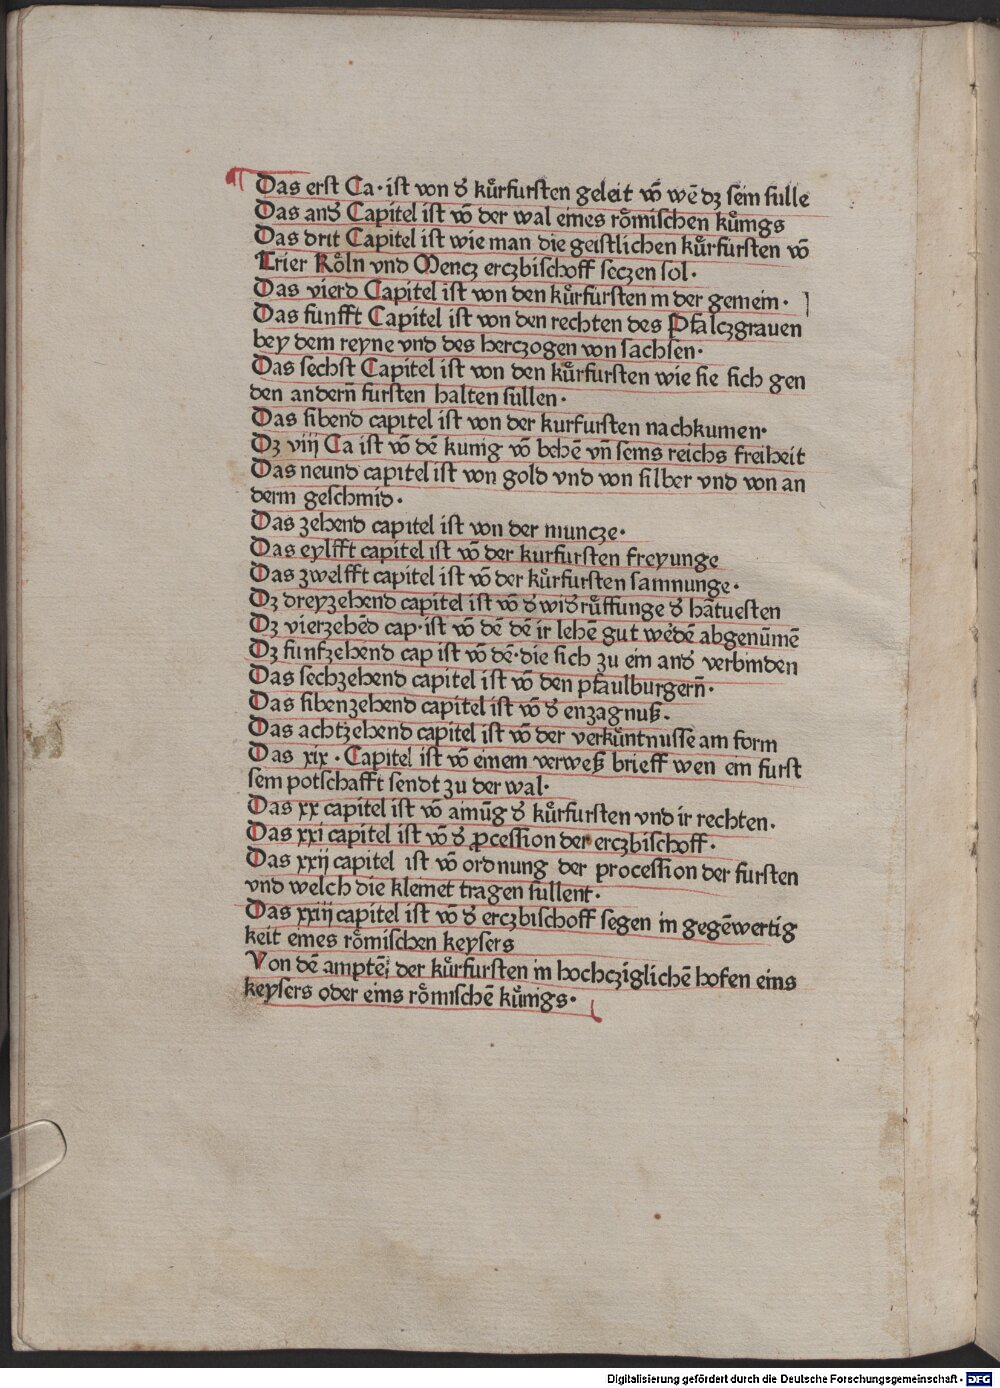 Das erst Ca· ist von d̕ kuͤrfursten geleit vō wē dz sein sulle
Das and̕ Capitel ist vō der wal eines roͤmischen kuͤnigs
Das drit Capitel ist wie man die geistlichen kuͤrfursten vō
Trier Koͤln vnd Mencz erczbischoff seczen sol·
Das vierd Capitel ist von den kuͤrfursten in der gemein·
Das funfft Capitel ist von den rechten des Pfalczgrauen
bey dem reyne vnd des herczogen von sachsen·
Das sechst Capitel ist von den kuͤrfursten wie sie sich gen
den andern̄ fursten halten sullen·
Das sibend capitel ist von der kurfursten nachkumen·
Dz viij Ca ist vō dē kunig vō behē vn̄ seins reichs freiheit
Das neund capitel ist von gold vnd von silber vnd von an
derm geschmid·
Das zehend capitel ist von der muncze·
Das eylfft capitel ist vō der kurfursten freyunge
Das zwelfft capitel ist vō der kuͤrfursten samnunge·
Dz dreyzehend capitel ist vō d̕ wid̕ruͤffunge d̕ hātuesten
Dz vierzehēd cap· ist vō dē dē ir lehē gut we̕dē abgenūmē
Dz funfzehend cap ist vō dē· die sich zu ein and̕ verbinden
Das sechzehend capitel ist vō den pfaulburgern̄·
Das sibenzehend capitel ist vō d̕ enzagnuß·
Das achtzehend capitel ist vō der verkuͤntnusse am form
Das xix· Capitel ist vō einem verweß brieff wen ein furst
sein potschafft sendt zu der wal·
Das xx capitel ist vō ainūg d̕ kuͤrfursten vnd ir rechten·
Das xxi capitel ist vō d̕ ꝓcession der erczbischoff·
Das xxij capitel ist vō ordnung der procession der fursten
vnd welch die kleinet tragen sullent·
Das xxiij capitel ist vō d̕ erczbischoff segen in gegēwertig
keit eines roͤmischen keysers
Von dē amptē der kuͤrfursten in hochcziglichē hofen eins
keysers oder eins roͤmischē kuͤnigs·
Digitalisierung gefördert durch die Deutsche Forschungsgemeinschaft · DFG